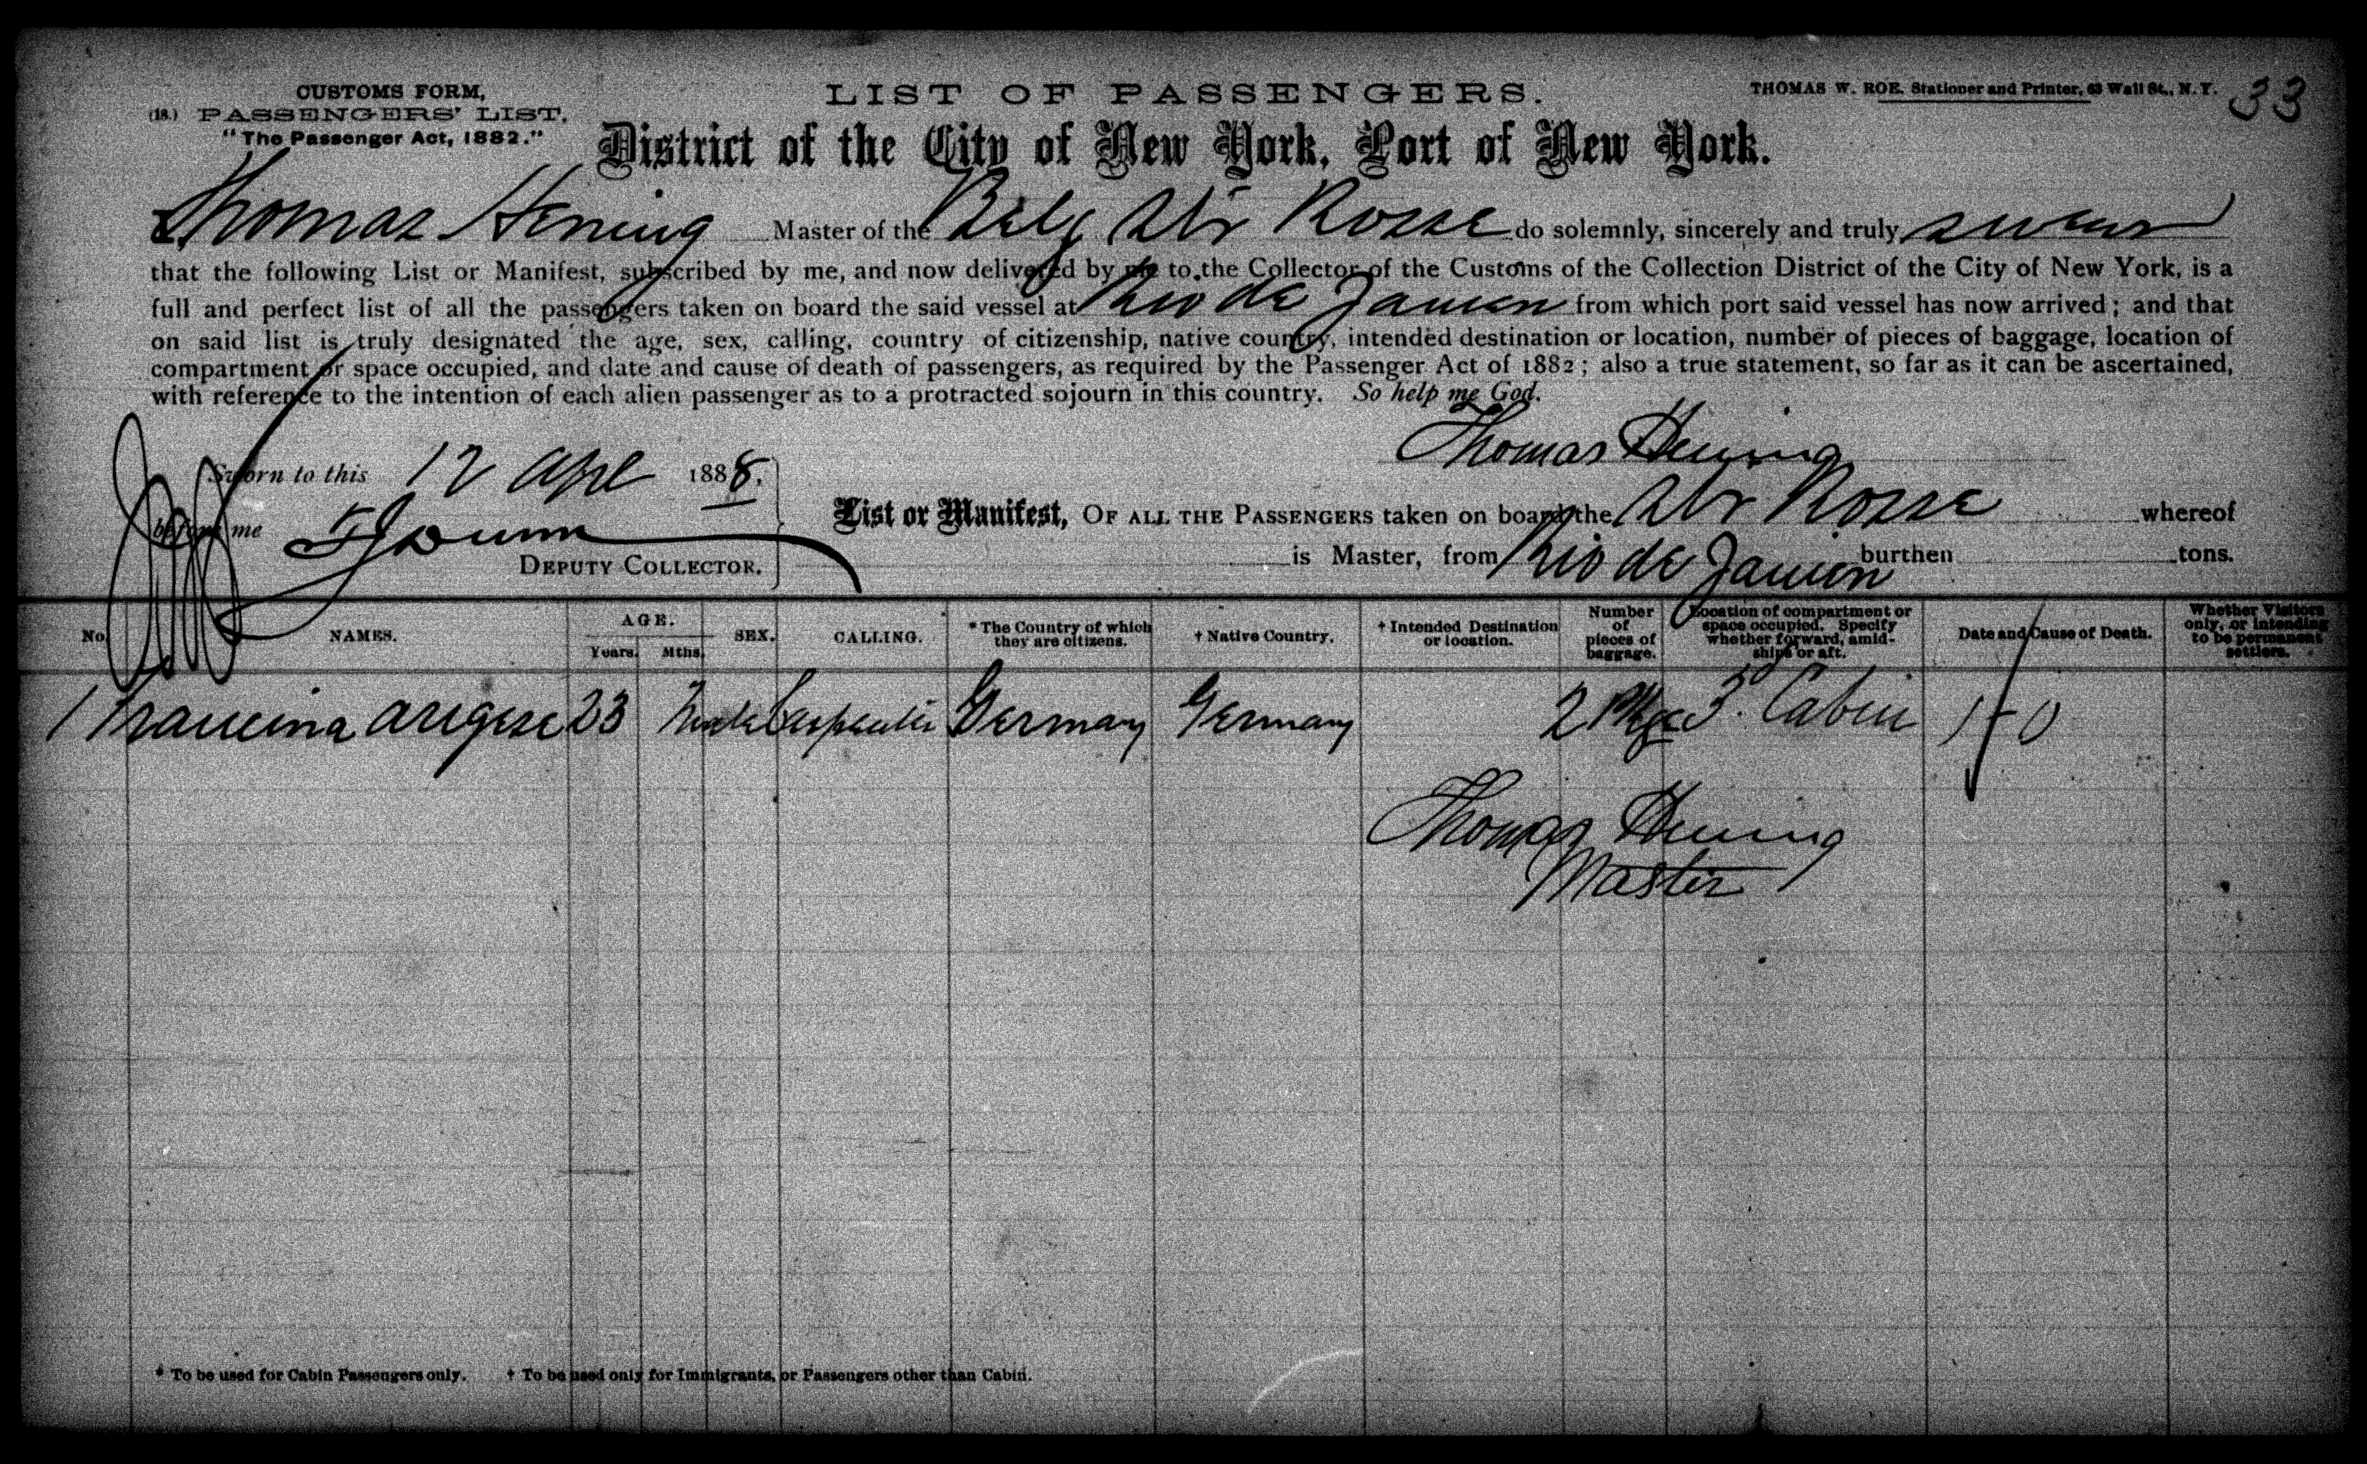 CUSTOMS FORM,
(18.) PASSENGERS' LIST.
"The Passenger Act, 1882."
LIST OF PASSENGERS.
THOMAS W. ROE, Stationer and Printer, 63 Wall St., N. Y.
33
District of the City of New York, Port of New York.
Thomas Hening Master of the Belg Str Rosse do solemnly, sincerely and truly swear
that the following List or Manifest, subscribed by me, and now delivered by me to the Collector of the Customs of the Collection District of the City of New York, is a
full and perfect list of all the passengers taken on board the said vessel at Rio de Janeiro from which port said vessel has now arrived; and that
on said list is truly designated the age, sex, calling, country of citizenship, native country, intended destination or location, number of pieces of baggage, location of
compartment or space occupied, and date and cause of death of passengers, as required by the Passenger Act of 1882; also a true statement, so far as it can be ascertained,
with reference to the intention of each alien passenger as to a protracted sojourn in this country. So help me God.
Thomas Hening
Sworn to this 12 Apl 1888.
before me
DEPUTY COLLECTOR.
List or Manifest, OF ALL THE PASSENGERS taken on board the Str Rosse whereof
is Master, from Rio de Janeiro burthen tons.
No. NAMES. AGE. Years. Mths. SEX. CALLING. * The Country of which they are citizens. † Native Country. † Intended Destination or location. Number of pieces of baggage. Location of compartment or space occupied. Specify whether forward, amidships or aft. Date and Cause of Death. Whether Visitors only, or intending to be permanent settlers.
1 23 Male Carpenter Germany Germany 2 Pkge Cabin 1-0
Thomas Hening
Master
* To be used for Cabin Passengers only. † To be used only for Immigrants, or Passengers other than Cabin.